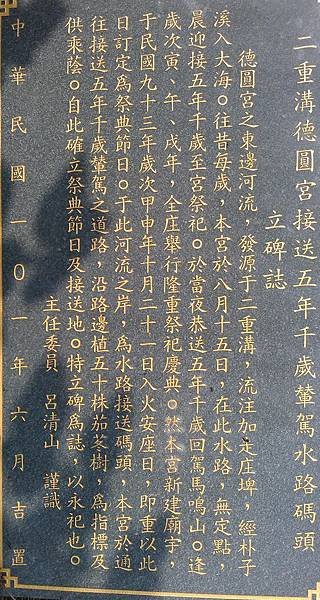 二重溝德圓宮接送五年千歲輦駕水路碼頭
立碑誌
德圓宮之東邊河流，發源于二重溝，流注加走庄埤，經朴子
溪入大海。往昔每歲，本宮於八月十五日，在此水路，無定點，
晨迎接五年千歲至宮祭祀。於當夜恭送五年千歲回駕馬鳴山。逢
歲次寅、午、戌年，全庄舉行隆重祭祀慶典。然本宮新建廟宇，
于民國九十三年歲次甲申年十月二十一日入火安座日，即重以此
日訂定為祭典節日。于此河流之岸，為水路接送碼頭，本宮於通
往接送五年千歲輦駕之道路，沿路邊植五十株茄苳樹，為指標及
供乘蔭。自此確立祭典節日及接送地。特立碑為誌，以永祀也。
主任委員 呂清山 謹識
中華民國一0一年六月吉置